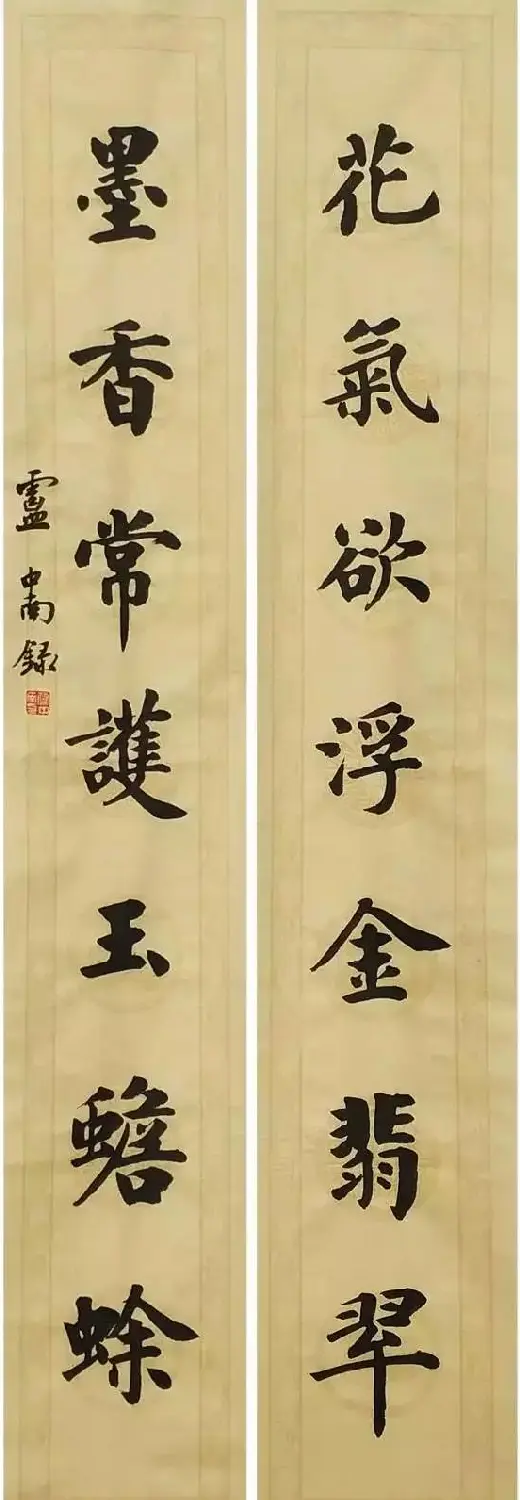 花氣欲浮金翡翠
墨香常護玉蟾蜍
盧中南録